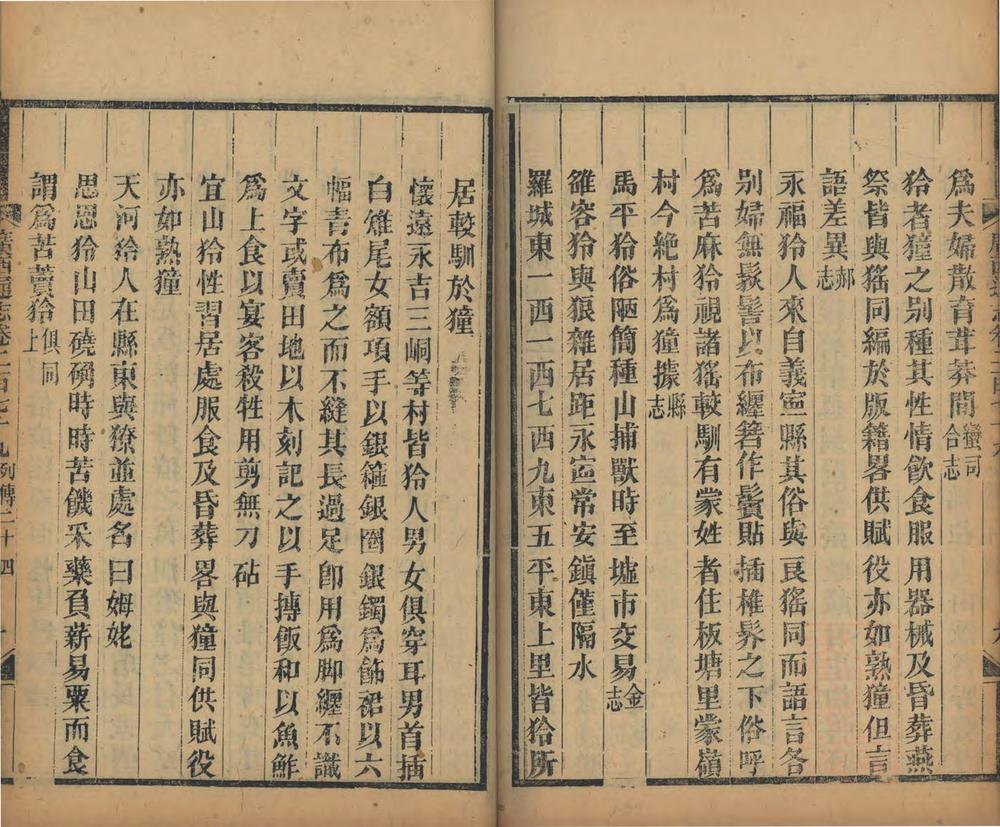 為夫婦散育茸莽閒蠻司合志
狑者獞之别種其性情飲食服用器械及昏葬燕
祭皆與猺同編於版籍畧供賦役亦如熟獞但言
語差異郝志
永福狑人來自義寍縣其俗與良猺同而語言各
别婦無鬏髻以布纒簪作鬢貼插椎髻之下俗呼
為苦麻狑視諸猺較馴有蒙姓者住板塘里蒙嶺
村今絶村為獞據縣志
馬平狑俗陋簡種山捕獸時至墟市交易金志
雒容狑與狼雜居距永寍常安鎮僅隔水
羅城東一西一西七西九東五平東上里皆狑所
居較馴於獞
懷遠永吉三峒等村皆狑人男女俱穿耳男首插
白雉尾女額項手以銀籮銀圈銀鐲為飾裙以六
幅青布為之而不縫其長過足卽用為脚纒不識
文字或賣田地以木刻記之以手摶飯和以魚鮓
為上食以宴客殺牲用剪無刀砧
宜山狑性習居處服食及昏葬畧與獞同供賦役
亦如熟獞
天河狑人在縣東與獠並處名曰姆姥
思恩狑山田磽确時時苦饑采藥負薪易粟而食
謂為苦蕒狑俱同上
廣西通志卷二百七十九列傳二十四